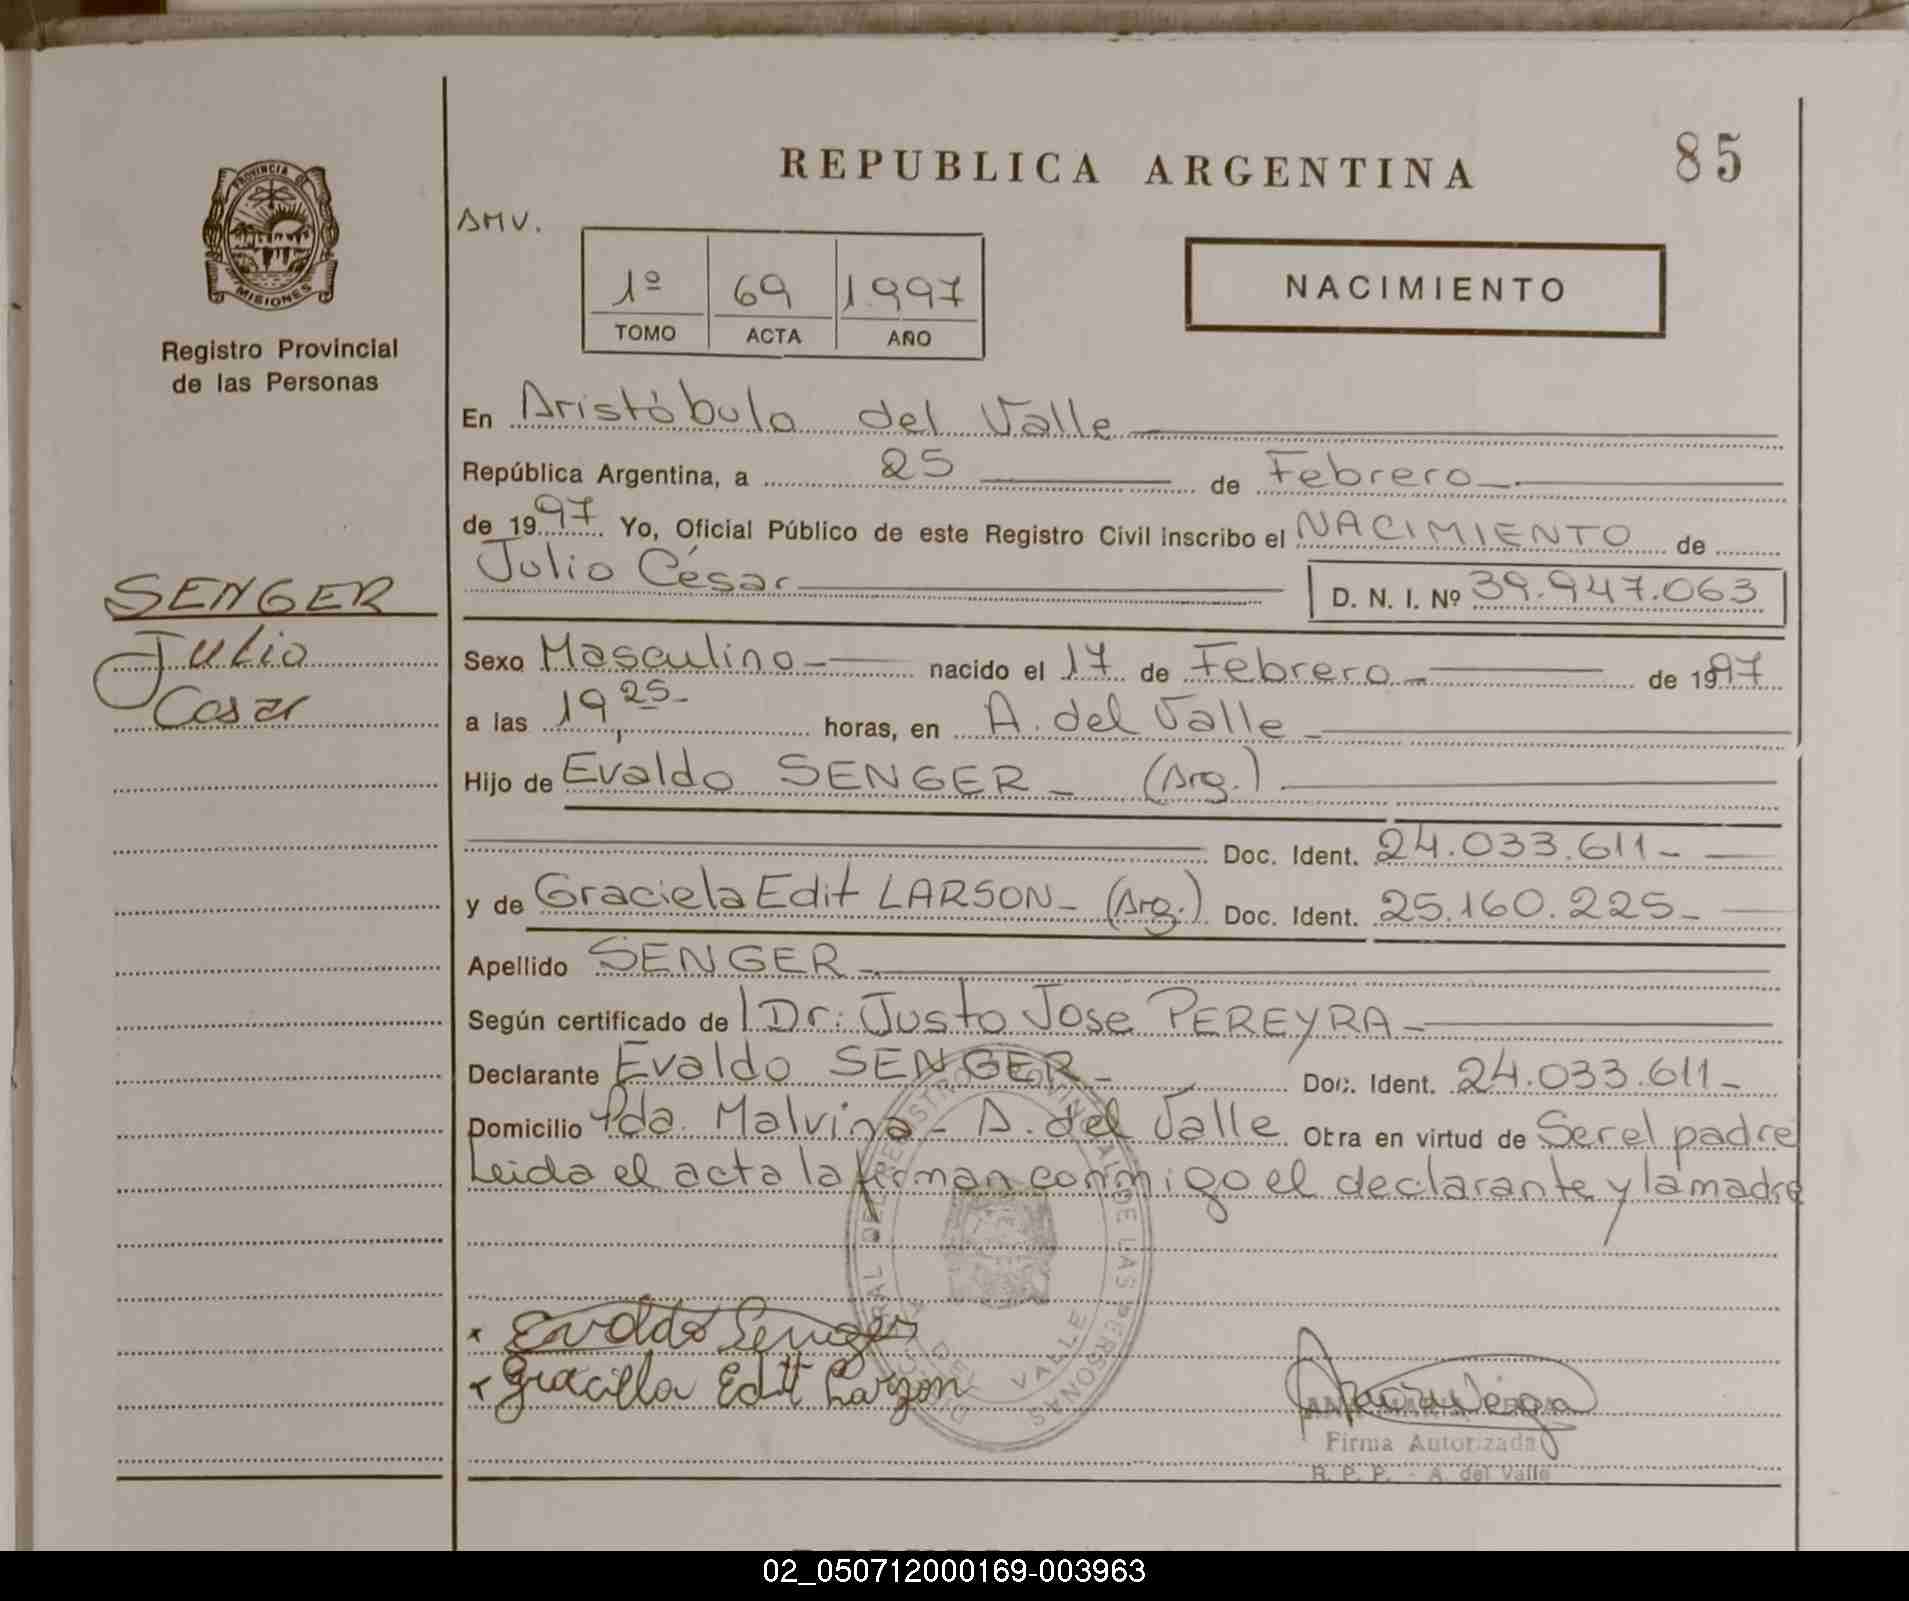 REPUBLICA ARGENTINA
85
PROVINCIA DE
MISIONES
Registro Provincial
de las Personas
AMV.
1º 69 1997
TOMO ACTA AÑO
NACIMIENTO
En Aristóbulo del Valle
República Argentina, a 25 de Febrero
de 1997 Yo, Oficial Público de este Registro Civil inscribo el NACIMIENTO de
Julio César D. N. I. Nº 39.947.063
SENGER
Julio
Cesar
Sexo Masculino nacido el 17 de Febrero de 1997
a las 19,25 horas, en A. del Valle
Hijo de Evaldo SENGER (Arg.)
Doc. Ident. 24.033.611
y de Graciela Edit LARSON (Arg.) Doc. Ident. 25.160.225
Apellido SENGER
Según certificado de Dr: Justo Jose PEREYRA
Declarante Evaldo SENGER Doc. Ident. 24.033.611
Domicilio Pda. Malvina - A. del Valle Obra en virtud de Ser el padre
Leida el acta la firman conmigo el declarante y la madre
x Evaldo Senger
x Graciela Edit Larzon
Firma Autorizada
R. P. P. - A. del Valle
02_050712000169-003963